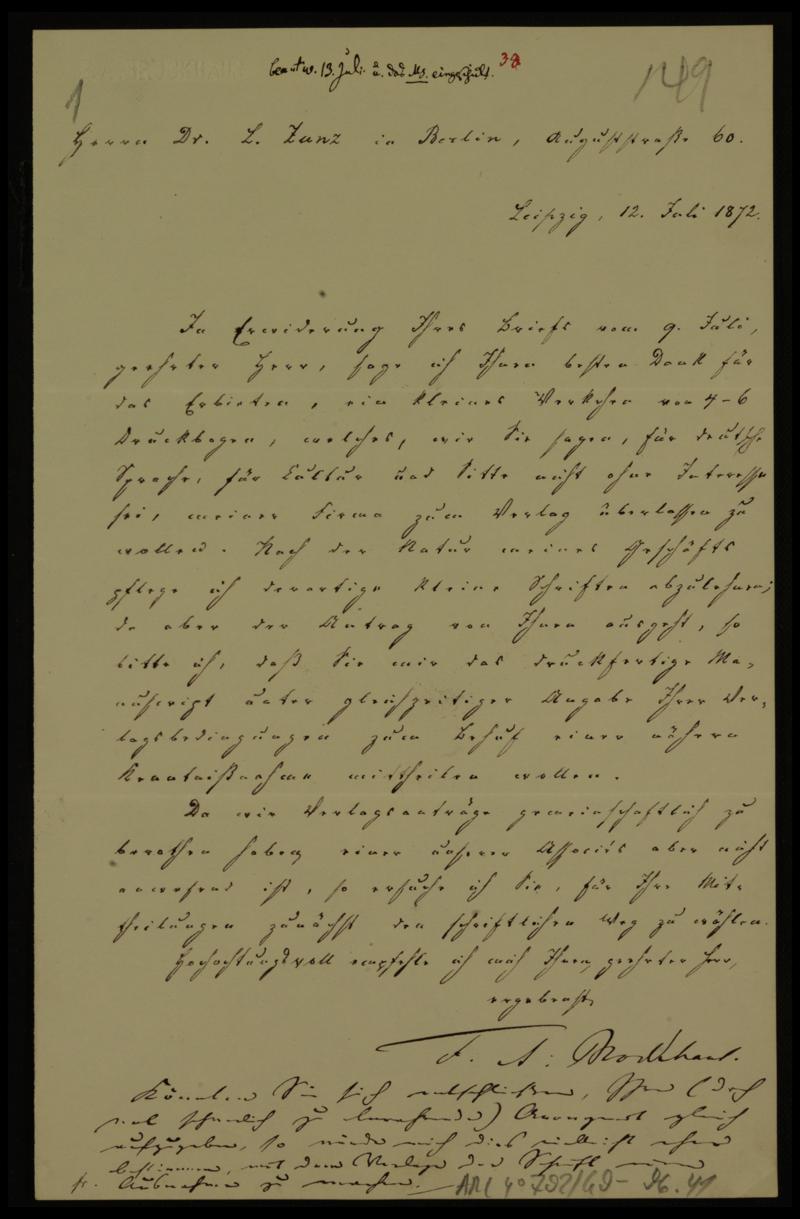 beantw. 13. Juli u. das Ms. eingeschickt. 38
149
1
Herrn Dr. L. Zunz in Berlin, Auguststraße 60.
Leipzig, 12. Juli 1872.
In Erwiderung Ihres Briefs vom 9. Juli,
geehrter Herr, sage ich Ihnen besten Dank für
das Erbieten, ein kleines Werkchen von 4-6
Druckbogen, welches, wie Sie sagen, für deutsche
Sprache, für Cultur und Sitte nicht ohne Interesse
sei, meiner Firma zum Verlag überlassen zu
wollen. Nach der Natur meines Geschäfts
pflege ich derartige kleine Schriften abzulehnen;
da aber der Antrag von Ihnen ausgeht, so
bitte ich, daß Sie mir das druckfertige Ma-
nuscript unter gleichzeitiger Angabe Ihrer Ver-
lagsbedingungen zum Behuf einer nähern
Kenntnißnahme mittheilen wollen.
Da wir Verlagsanträge gemeinschaftlich zu
berathen haben, einer unserer Associés aber nicht
anwesend ist, so ersuche ich Sie, für Ihre Mit-
theilungen zunächst den schriftlichen Weg zu wählen.
Hochachtungsvoll empfehle ich mich Ihnen, geehrter Herr,
ergebenst
F. A. Brockhaus.
Könnten Sie sich entschließen, Ihre (doch
wol ziemlich zu) gleich
aufzugeben, so würde mich dies vielleicht eher
bestimmen, mit dem Verlage der Schrift eine
Ausnahme zu machen.
ARC 4° 792/G9-